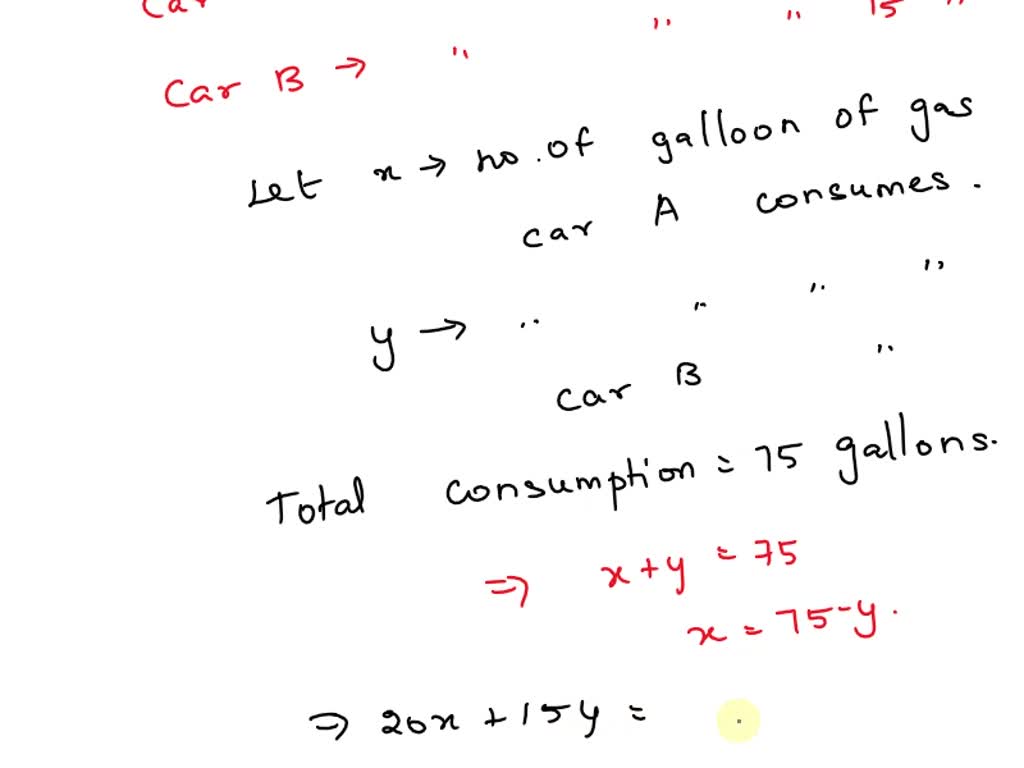 Car
" " 15 "
Car B → "
Let x → no. of galloon of gas
car A consumes.
y → " " " "
car B "
Total consumption = 75 gallons.
⇒ x + y = 75
x = 75 - y.
⇒ 20x + 15y =